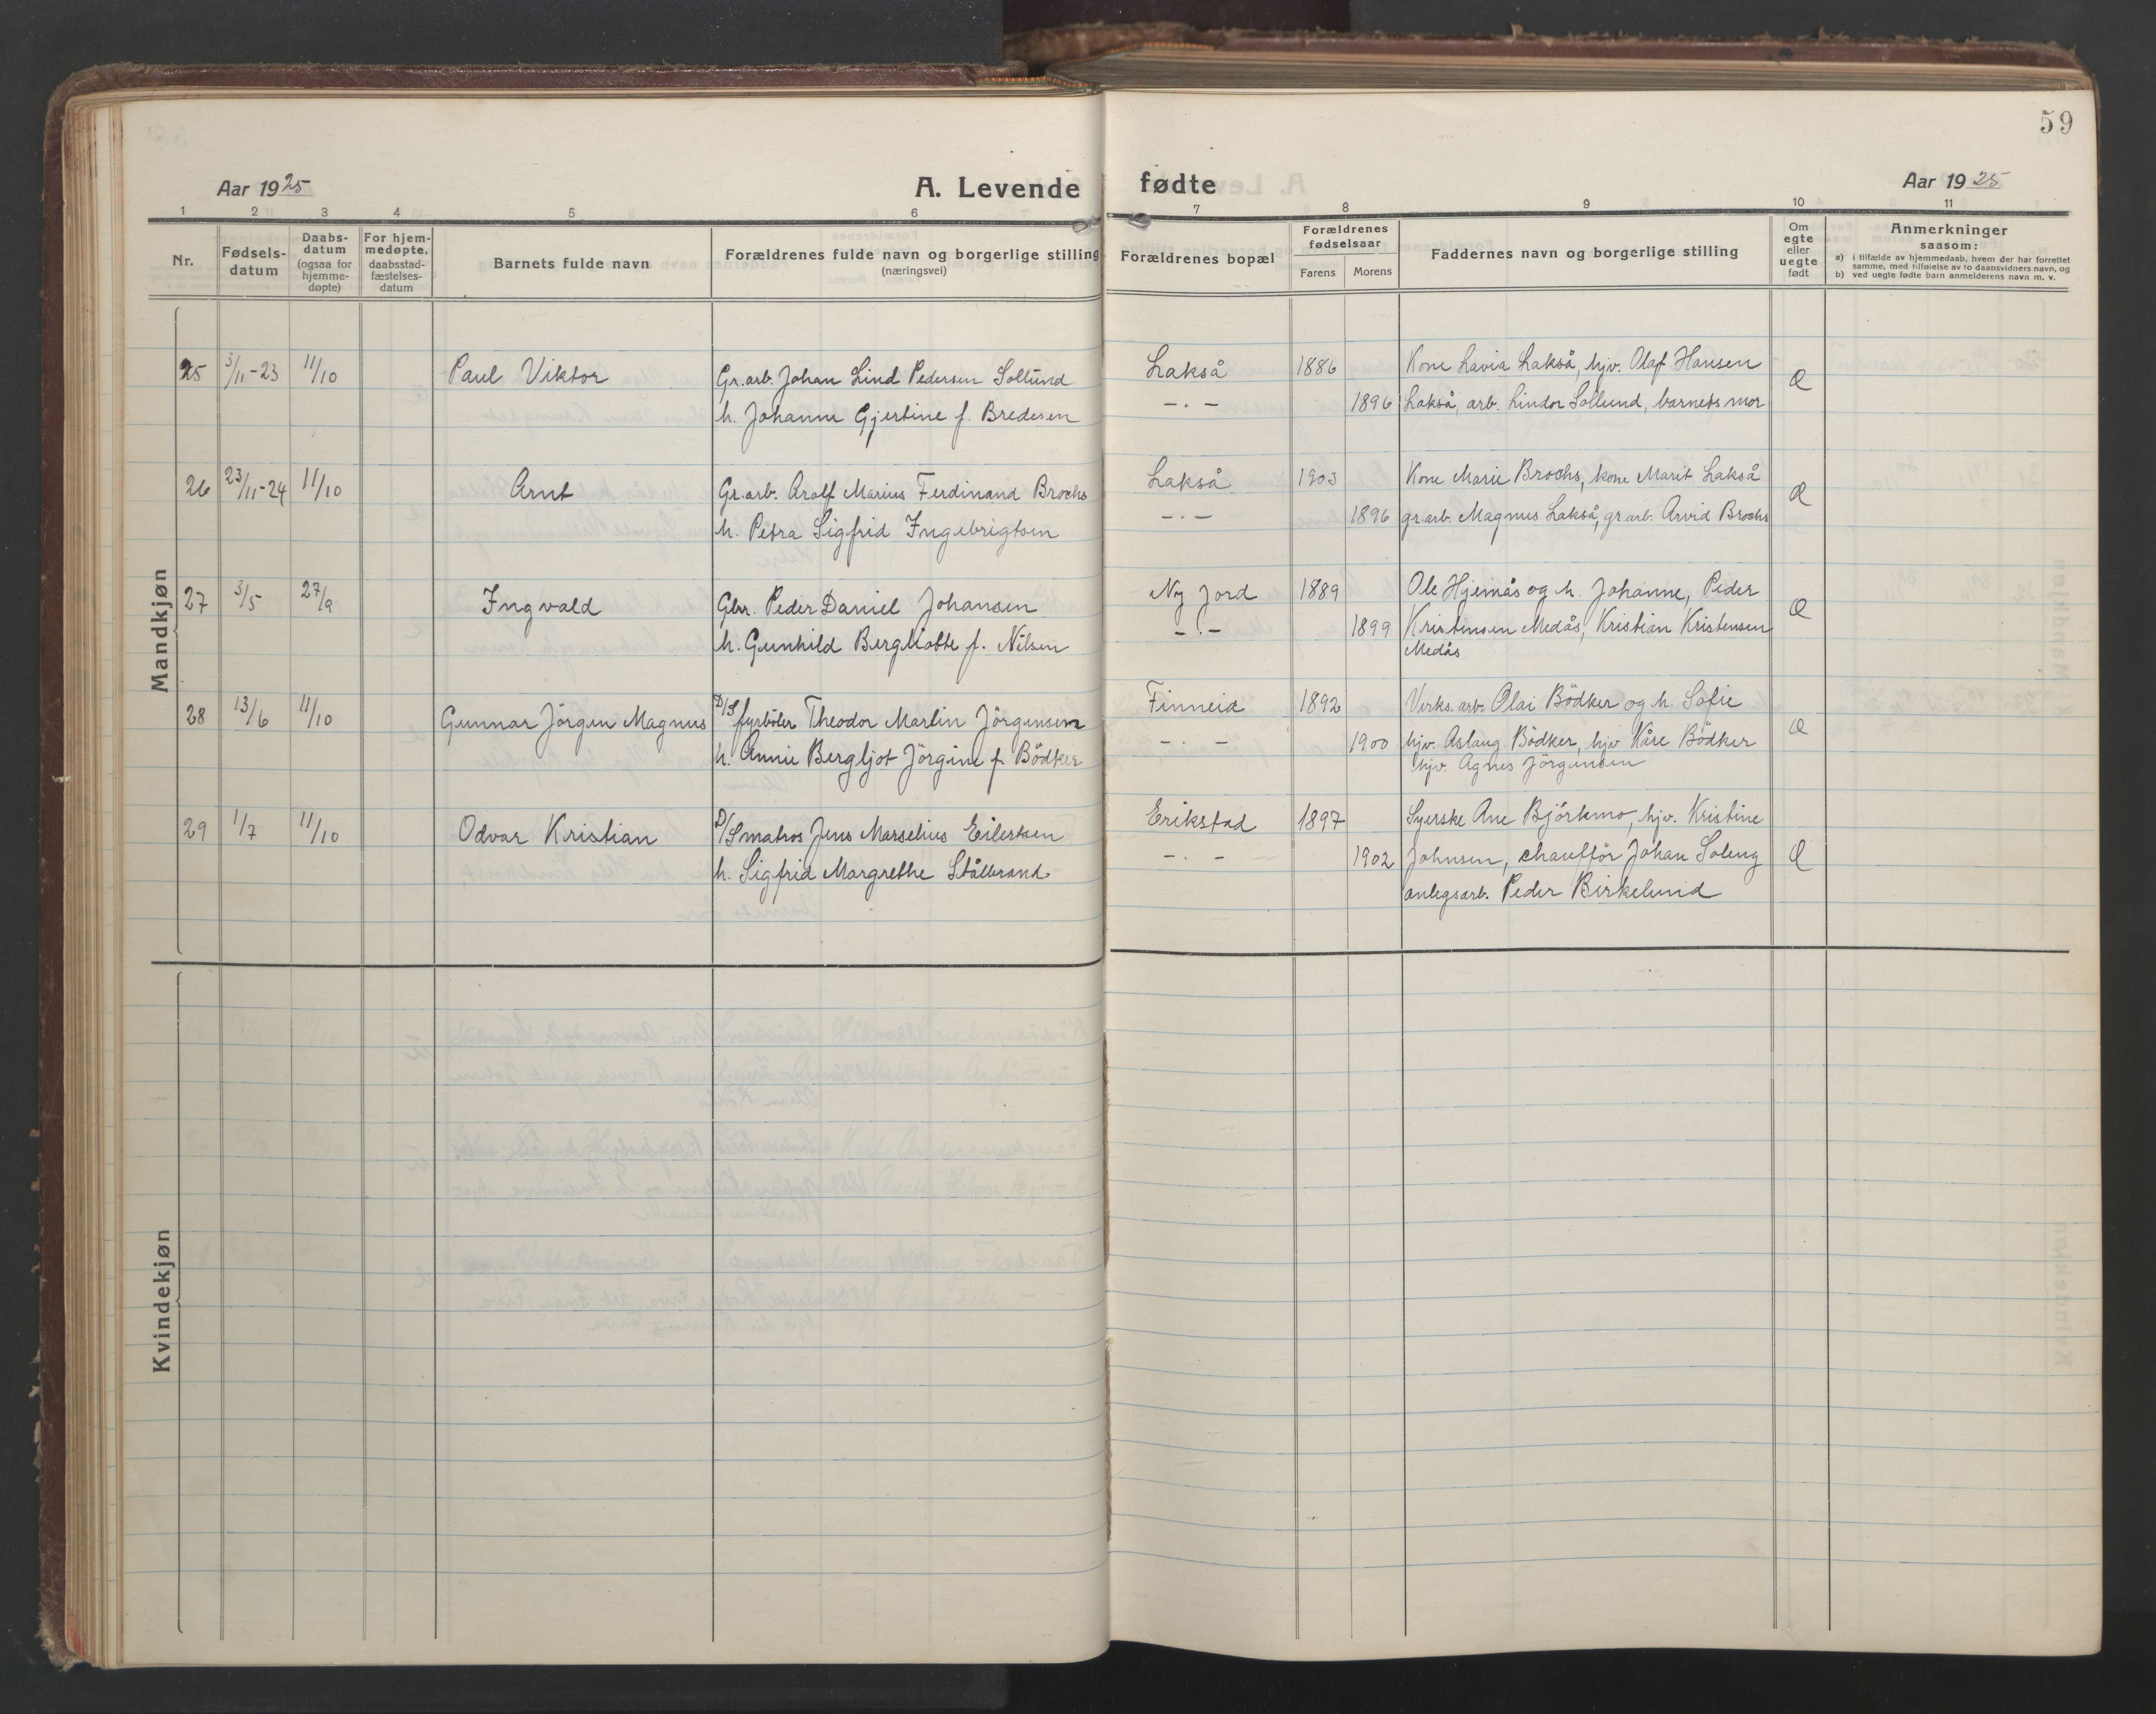 59
Aar 1925
A. Levende fødte
Aar 1925
1 2 3 4 5 6 7 8 9 10 11
Nr.
Fødselsdatum
Daabsdatum (ogsaa for hjemmedøpte)
For hjemmedøpte. daabsstadfæstelsesdatum
Barnets fulde navn
Forældrenes fulde navn og borgerlige stilling (næringsvei)
Forældrenes bopæl
Forældrenes fødselsaar
Farens
Morens
Faddernes navn og borgerlige stilling
Om egte eller uegte født
Anmerkninger saasom:
a) i tilfælde av hjemmedaab, hvem der har forrettet samme, med tilføielse av to daabsvidners navn, og
b) ved uegte fødte barn anmelderens navn m. v.
Mandkjøn
25 3/11-23 11/10 Paul Viktor Gr.arb. Johan Lind Pedersen Sollund Lakså 1886 Kone Lavia Lakså, hjv. Olaf Hansen
h. Johanne Gjertine f. Bredesen -.- 1896 Lakså, arb. Lindor Sollund, barnets mor
e
26 23/11-24 11/10 Arnt Gr.arb. Arolf Marius Ferdinand Brochs Lakså 1903 Kone Marie Brochs, kone Marit Lakså
h. Petra Sigfrid Ingebrigtsen -.- 1896 gr.arb. Magnus Lakså, gr.arb. Arvid Brochs
e
27 3/5 27/9 Ingvald Gbr. Peder Daniel Johansen Ny Jord 1889 Ole Hjemås og h. Johanne, Peder
h. Gunhild Bergliotte f. Nilsen -.- 1899 Kristensen Medås, Kristian Kristensen
Medås
e
28 13/6 11/10 Gunnar Jörgen Magnus D/S fyrböter Theodor Martin Jörgensen Finneid 1892 Verks.arb. Olai Bödker og h. Sofie
h. Annie Bergljot Jörgine f. Bödker -.- 1900 hjv. Aslaug Bödker, hjv Kåre Bödker
hjv. Agnes Jörgensen
e
29 1/7 11/10 Odvar Kristian D/S matros Jens Marselius Eilertsen Erikstad 1897 Syerske Ane Björkmo, hjv. Kristine
h. Sigfrid Margrethe Stålbrand -.- 1902 Johnsen, chaufför Johan Soleng
anlegsarb. Peder Birkelund
e
Kvindekjøn